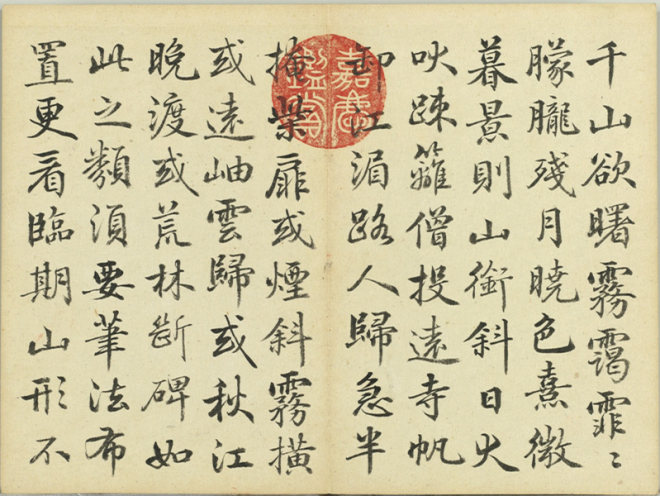 千山欲曙霧靄霏〻
朦朧殘月曉色熹微
暮景則山銜斜日犬
吠踈籬僧投遠寺帆
卸江湄路人歸急半
掩柴扉或煙斜霧橫
或遠岫雲歸或秋江
晚渡或荒林斷碑如
此之類須要筆法布
置更看臨期山形不
嘉慶鑑賞